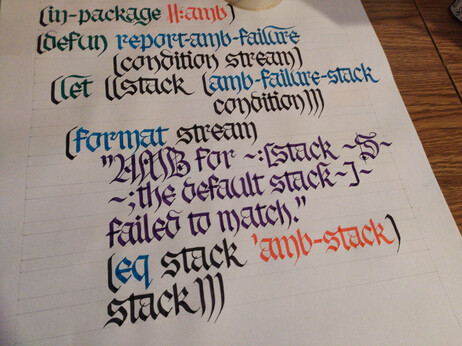 (in-package #:amb)
(defun report-amb-failure
(condition stream)
(let ((stack (amb-failure-stack
condition)))
(format stream
"AMB for ~:[stack ~S~
~;the default stack~]~
failed to match."
(eq stack 'amb-stack)
stack)))